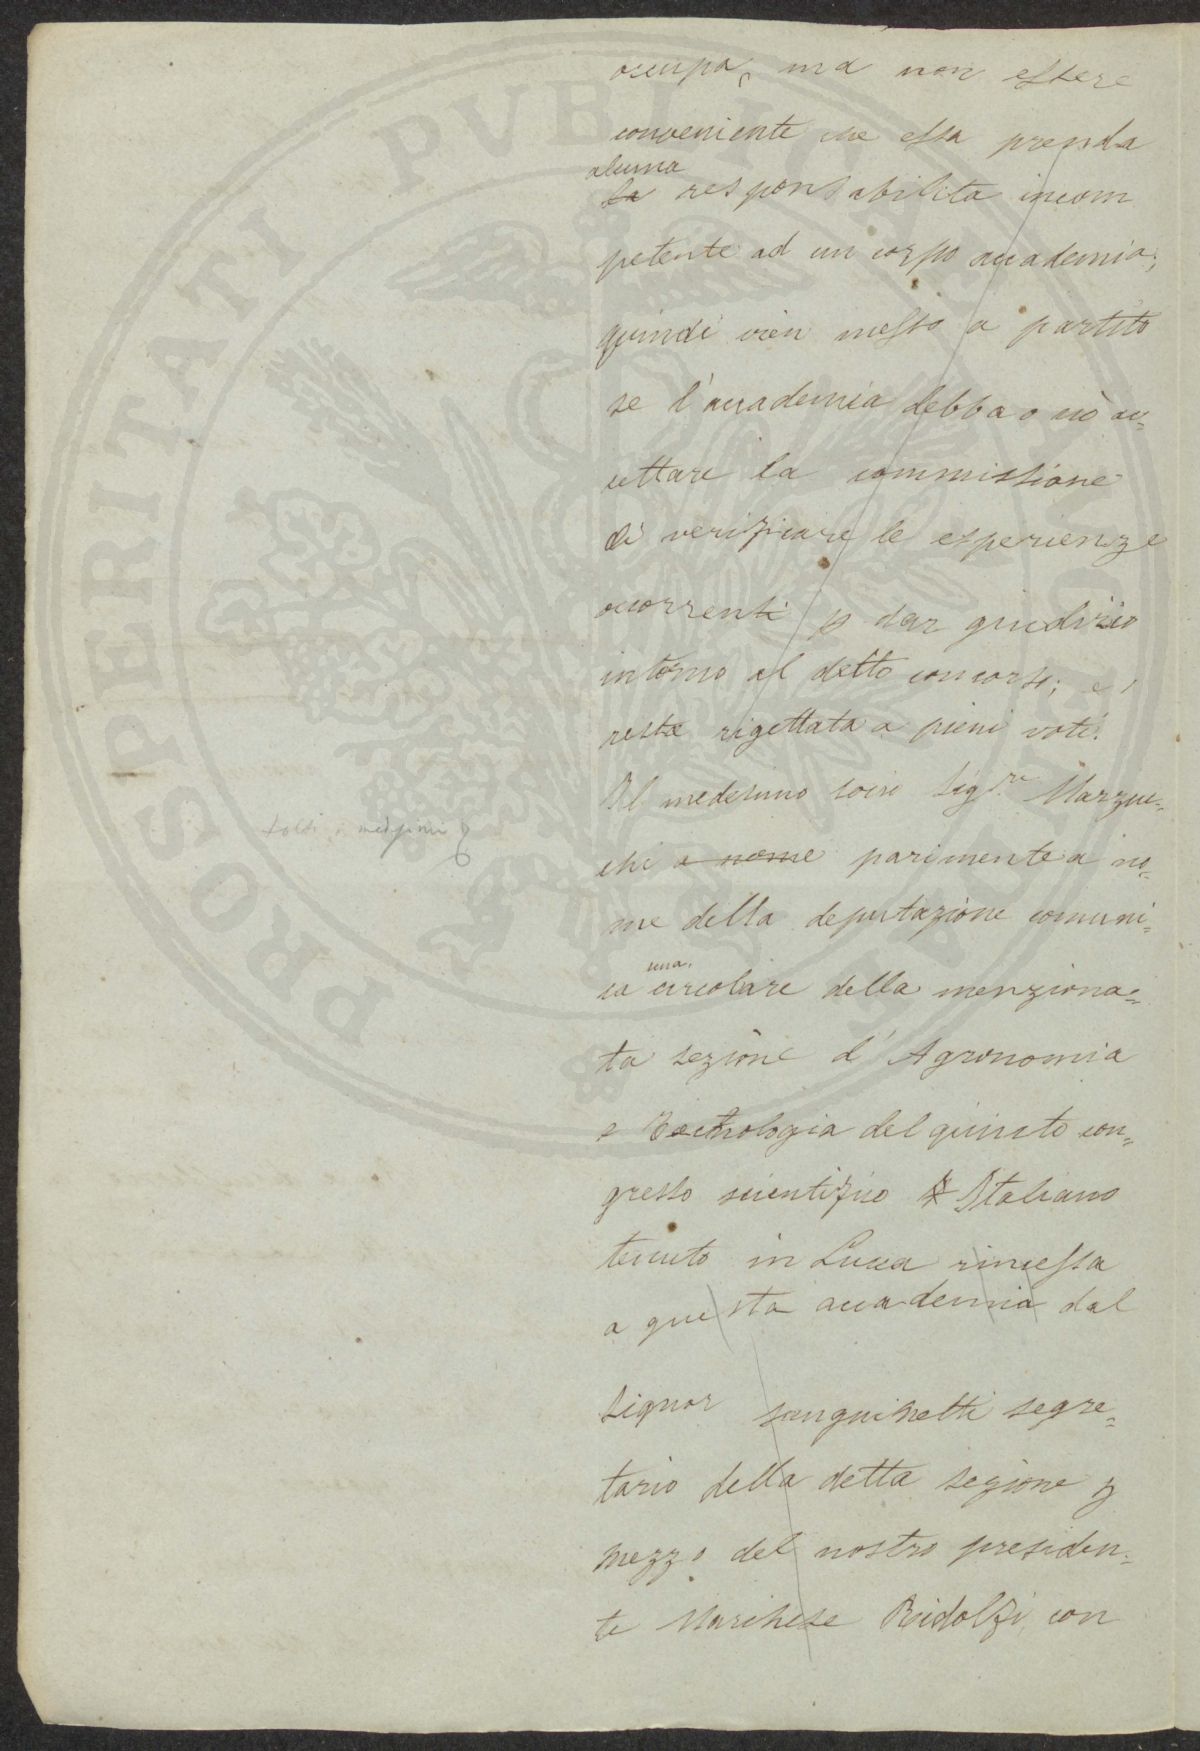 occupa, ma non essere
conveniente che essa prenda
alcuna
la responsabilita incom
petente ad un corpo accademico;
quindi vien messo a partito
se l'accademia debba o nò ac=
cettare la commissione
di verificare le esperienze
occorrenti p dar giudizio
intorno al detto concorso; e
resta rigettata a pieni voti.
Il medesimo socio Sig.re Mazzuc=
chi a nome parimente a no=
me della deputazione comuni=
una
ca circolare della menziona=
ta sezione d'Agronomia
e Tecnologia del quinto con=
gresso scientifico Italiano
tenuto in Lucca rimessa
a questa accademia dal
Signor Sanguinetti segre=
tario della detta sezione p
mezzo del nostro presiden=
te Marchese Ridolfi, con
PROSPERITATI PVBLICAE